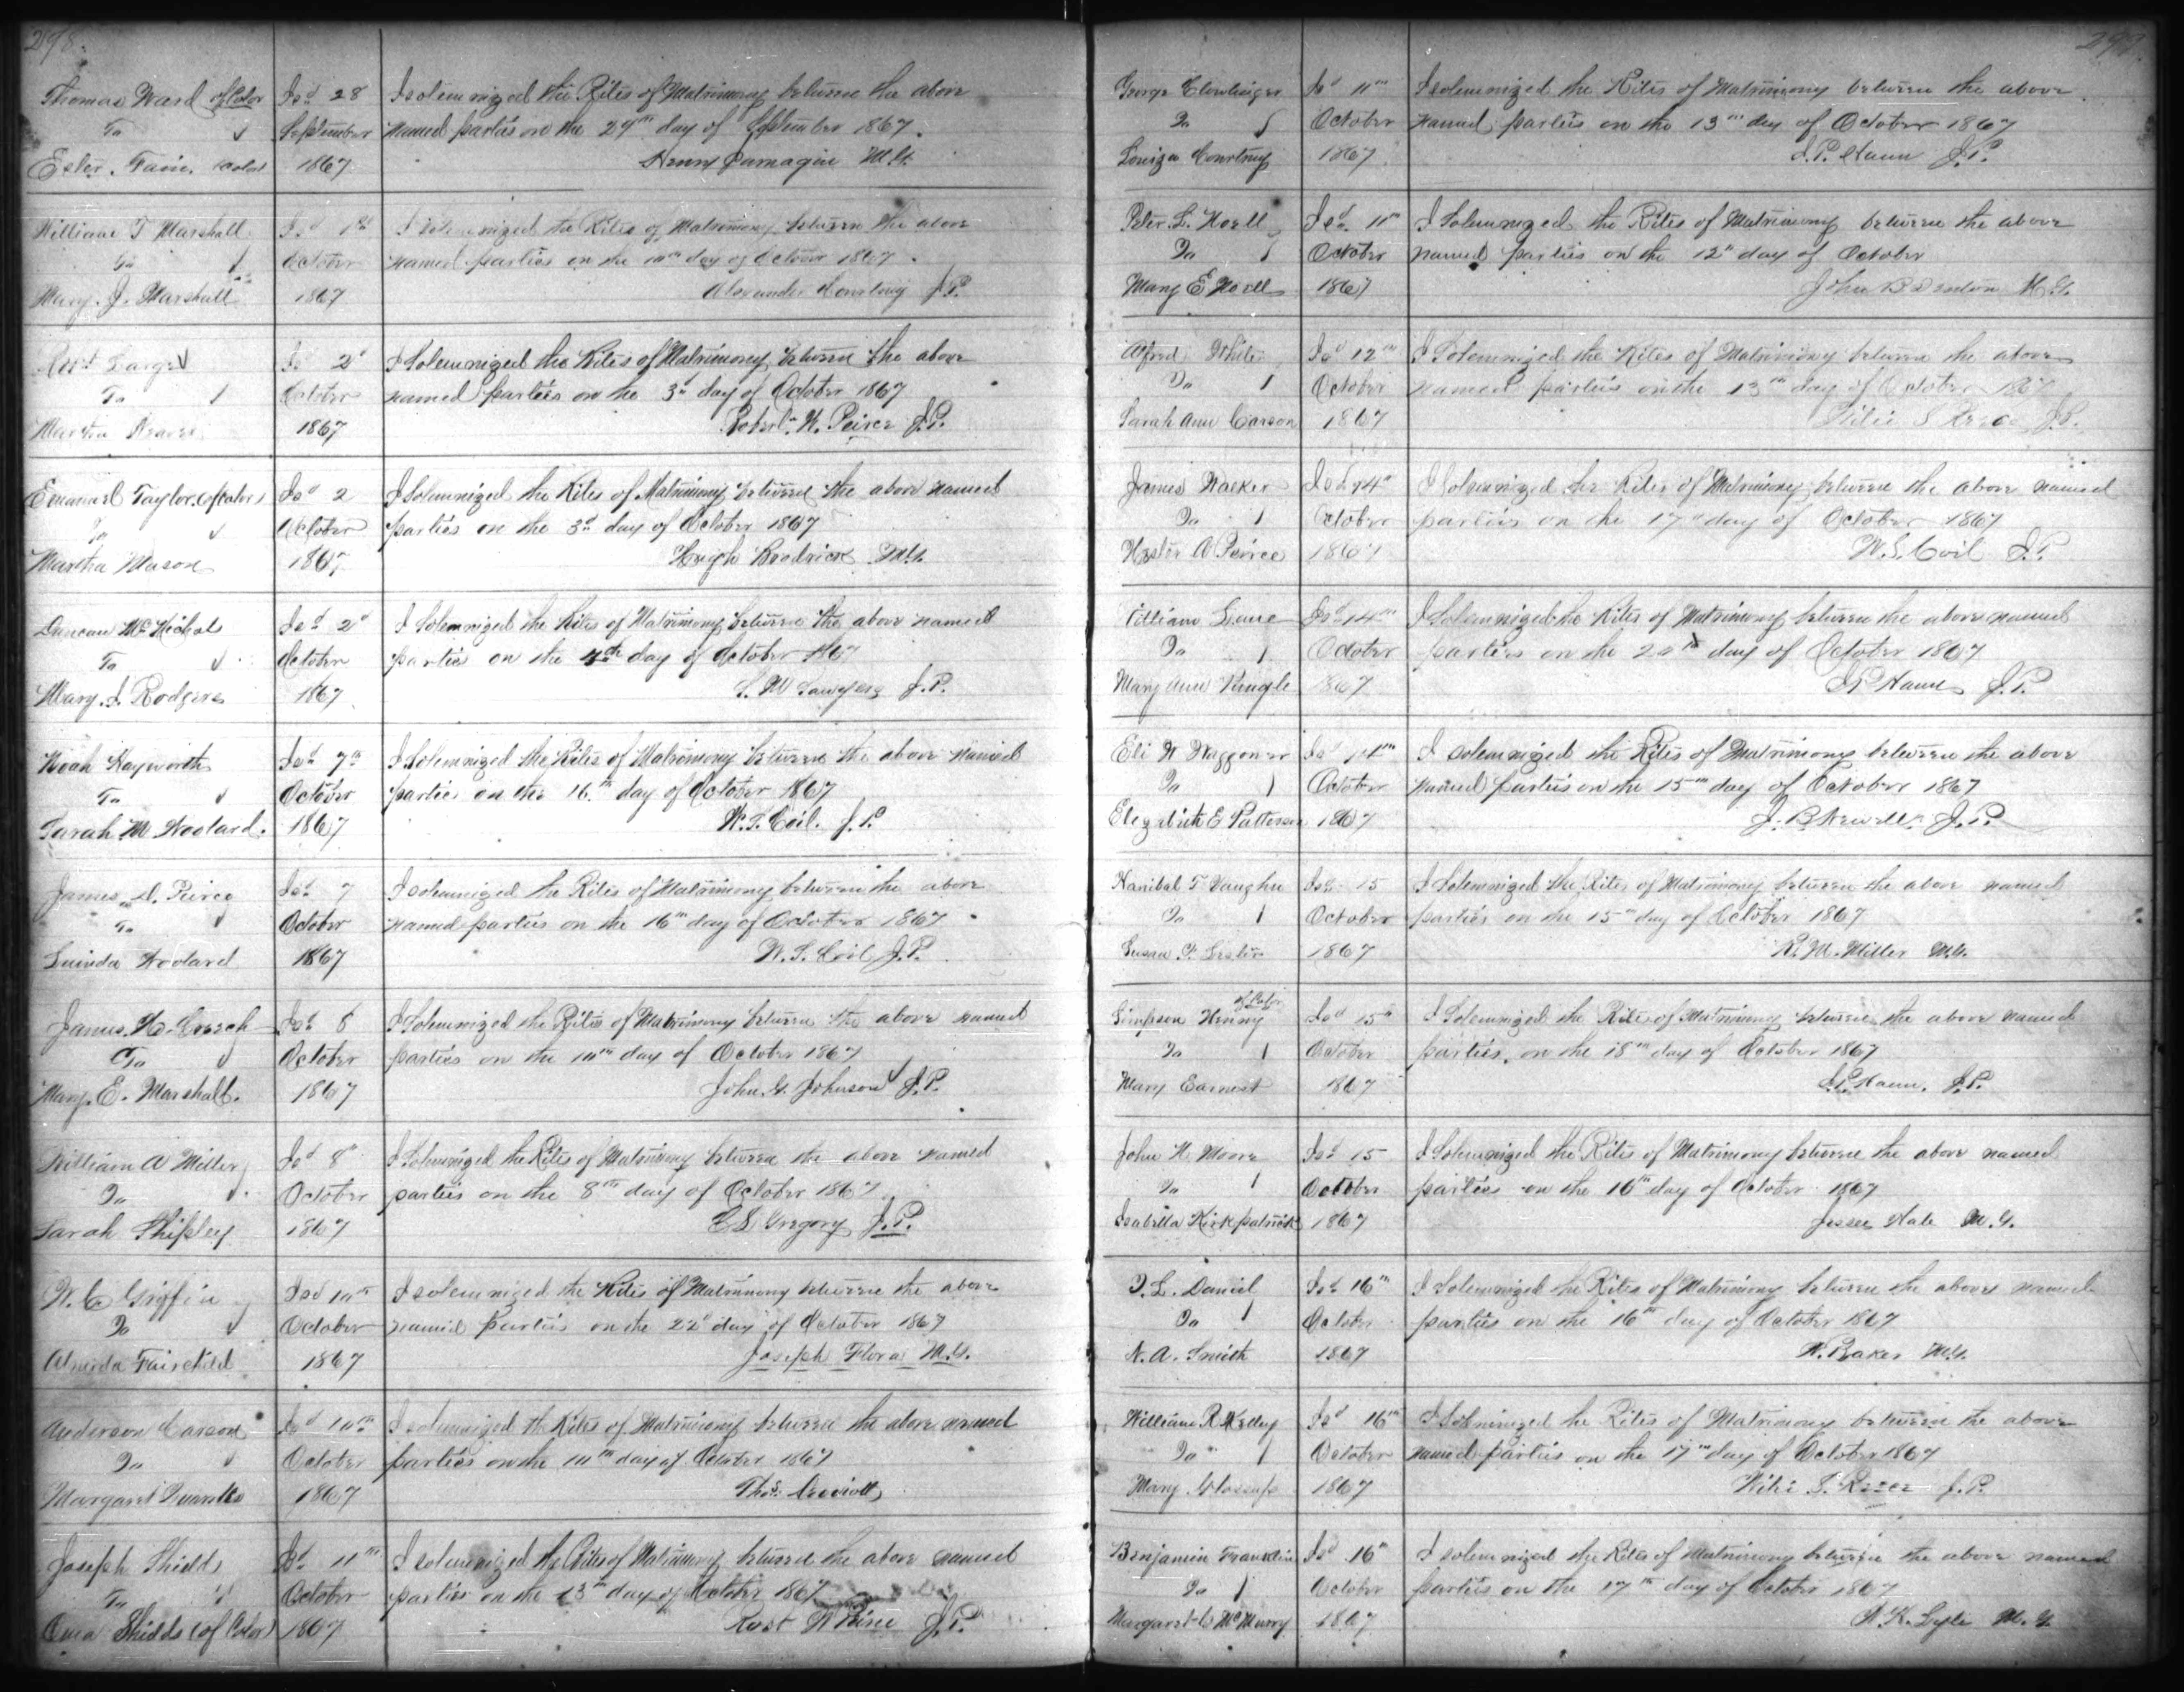 298.
Thomas Ward of Color Isd 28 I solemnized the Rites of Matrimony between the above
To September named parties on the 29th day of September 1867.
Ester. Fain. Color 1867 Henry Jarnagin M.G.
William T Marshall Isd 1st I solemnized the Rites of Matrimony between the above
To October named parties on the 10th day of October 1867.
Mary. J. Marshall 1867 Alexander Courtney J.P.
Isd 2d I Solemnized the Rites of Matrimony between the above
To October named parties on the 3d day of October 1867
Martha 1867 Robert. W. Peirce J.P.
Emanuel Taylor. of color Isd 2 I Solemnized the Rites of Matrimony between the above named
To October parties on the 3d day of October 1867
Martha Mason 1867 Hugh Brodrick M.G.
Duncan McNichols Isd 2d I Solemnized the Rites of Matrimony between the above named
To October parties on the 4th day of October 1867
Mary. J. Rodgers 1867 S. W Sawyers J.P.
Noah Hayworth Isd 7th I Solemnized the Rites of Matrimony between the above named
To October parties on the 16.th day of October 1867
Sarah M Woolard. 1867 W.S. Coil. J.P.
James. D. Peirce Isd 7 I solemnized the Rites of Matrimony between the above
To October named parties on the 16th day of October 1867
Lurinda Woolard 1867 W.S. Coil J.P.
James. H. Creech Isd 8 I Solemnized the Rites of Matrimony between the above named
To October parties on the 10th day of October 1867
Mary. E. Marshall. 1867 John. G. Johnson J.P.
William A Miller Isd 8th I Solemnized the Rites of Matrimony between the above named
To October parties on the 8th day of October 1867
Sarah Shipley 1867 E S Gregory J.P.
W. C Griffin Isd 10th I solemnized the Rites of Matrimony between the above
To October named parties on the 22d day of October 1867
Almeda Fairchild 1867 Joseph Flora M.G.
Anderson Carson Isd 10th I solemnized the Rites of Matrimony between the above named
To October parties on the 10th day of October 1867
Margaret 1867 Thos.
Joseph Shields Isd 11th I solemnized the Rites of Matrimony between the above named
To October parties on the 13th day of October 1867
Shields (of Color) 1867 Robt W Peirce J.P.
299.
George Clowlinger Isd 11th I solemnized the Rites of Matrimony between the above
To October named parties on the 13th day of October 1867
Louiza Courtney 1867 J.P. Haun J.P.
Peter L. Noell Isd. 11th I Solemnized the Rites of Matrimony between the above
To October named parties on the 12th day of October
Mary E Noell 1867 John B Denton M.G.
Alfred White Isd 12th I Solemnized the Rites of Matrimony between the above
To October named parties on the 13th day of October 1867
Sarah Ann Carson 1867 Wilie S Reece J.P.
James Walker Isd 14th I Solemnized the Rites of Matrimony between the above named
To October parties on the 17th day of October 1867
Hester A Peirce 1867 W.S. Coil J.P.
William Lane Isd 14th I Solemnized the Rites of Matrimony between the above named
To October parties on the 20th day of October 1867
Mary Ann Pringle 1867 J P Haun J.P.
Eli W Waggoner Isd 14th I solemnized the Rites of Matrimony between the above
To October named parties on the 15th day of October 1867
Elezabith E Patterson 1867 J. B Newell. J.P.
Hanibal T Vaughn Isd. 15 I Solemnized the Rites of Matrimony between the above named
To October parties on the 15th day of October 1867
Susan 1867 R. M. Miller M.G.
of Color
Simpson Henry Isd 15th I Solemnized the Rites of Matrimony between the above named
To October parties. on the 18th day of October 1867
Mary Earnest 1867 J.P. Haun. J.P.
John H. Moore Isd 15 I Solemnized the Rites of Matrimony between the above named
To October parties on the 16th day of October 1867
Isabella Kirkpatrick 1867 Jesse Hale M.G.
D. L. Daniel Isd 16th I Solemnized the Rites of Matrimony between the above named
To October parties on the 16th day of October 1867
N. A. Smith 1867 W. Baker M.G.
William R Kelley Isd 16th I Solemnized the Rites of Matrimony between the above
To October named parties on the 17th day of October 1867
Mary Glossup 1867 Wilie S. Reece J.P.
Benjamin Franklin Isd 16th I solemnized the Rites of Matrimony between the above named
To October parties on the 17th day of October 1867
Margaret C McMurry 1867 A. K. Lyle M.G.